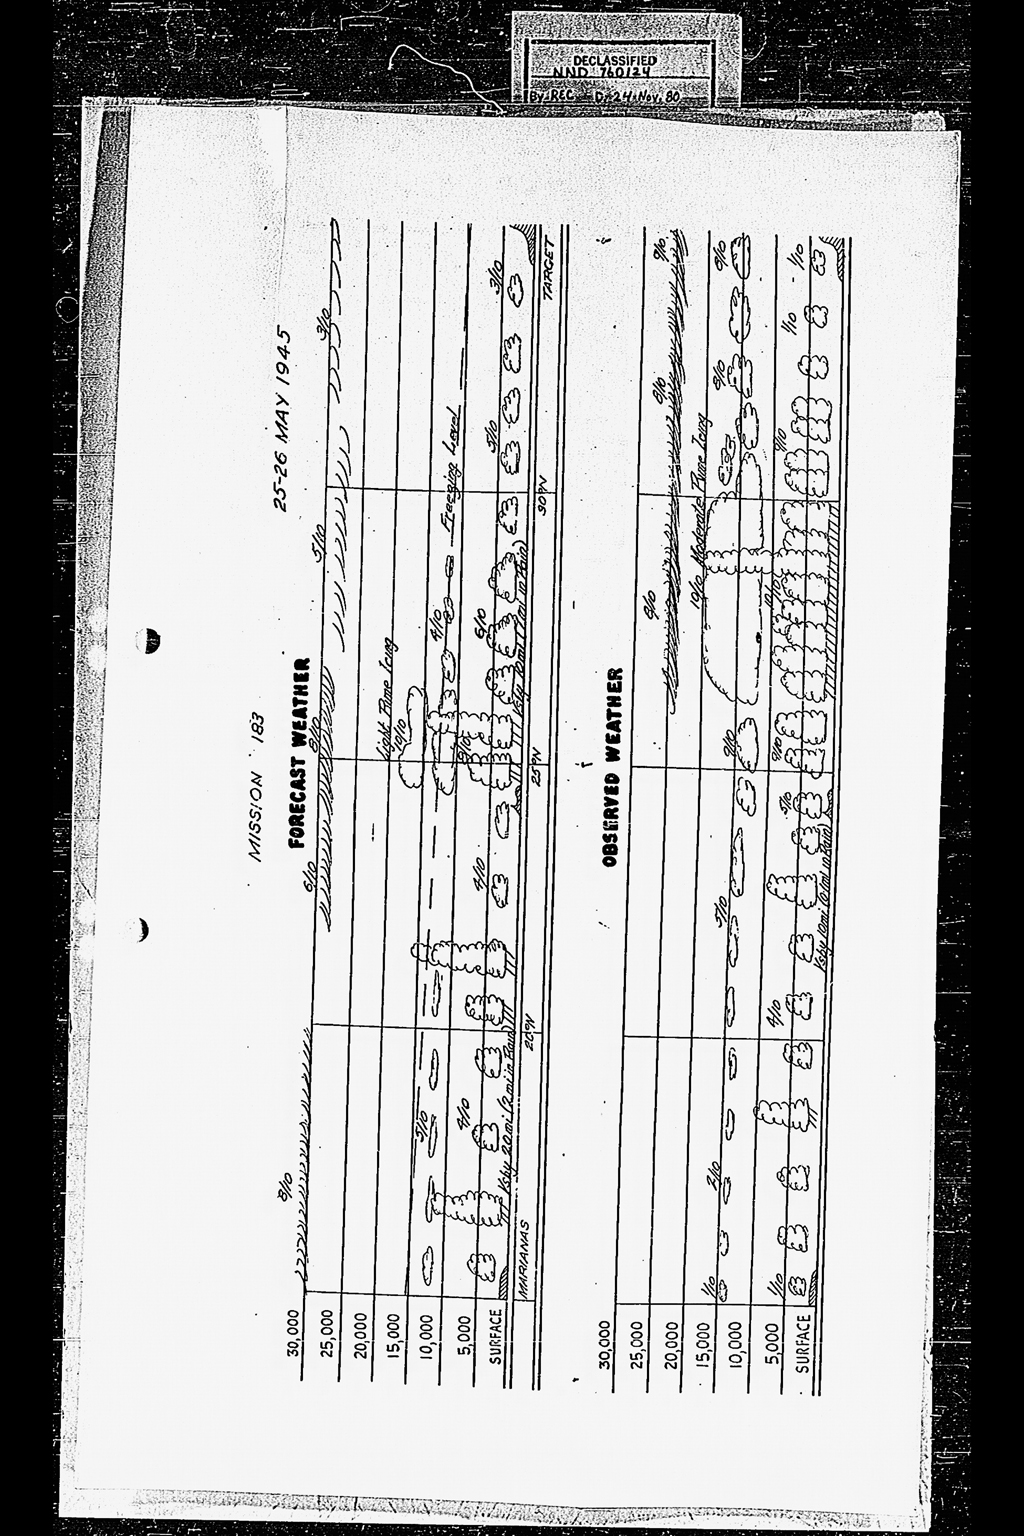 DECLASSIFIED
NND 760124
By: REC D: 24 Nov. 80
MISSION 183
25-26 MAY 1945
FORECAST WEATHER
30,000
25,000
20,000
15,000
10,000
5,000
SURFACE
8/10
6/10
8/10
5/10
3/10
Light Rime Icing
10/10
Freezing Level
5/10
4/10
4/10
4/10
6/10
5/10
3/10
Vsby 20 mi (2 mi in Rain)
MARIANAS
20°N
25°N
30°N
TARGET
OBSERVED WEATHER
30,000
25,000
20,000
15,000
10,000
5,000
SURFACE
9/10
10/10 Moderate Rime Icing
1/10
2/10
5/10
9/10
8/10
9/10
1/10
4/10
9/10
1/10
1/10
Vsby 10 mi